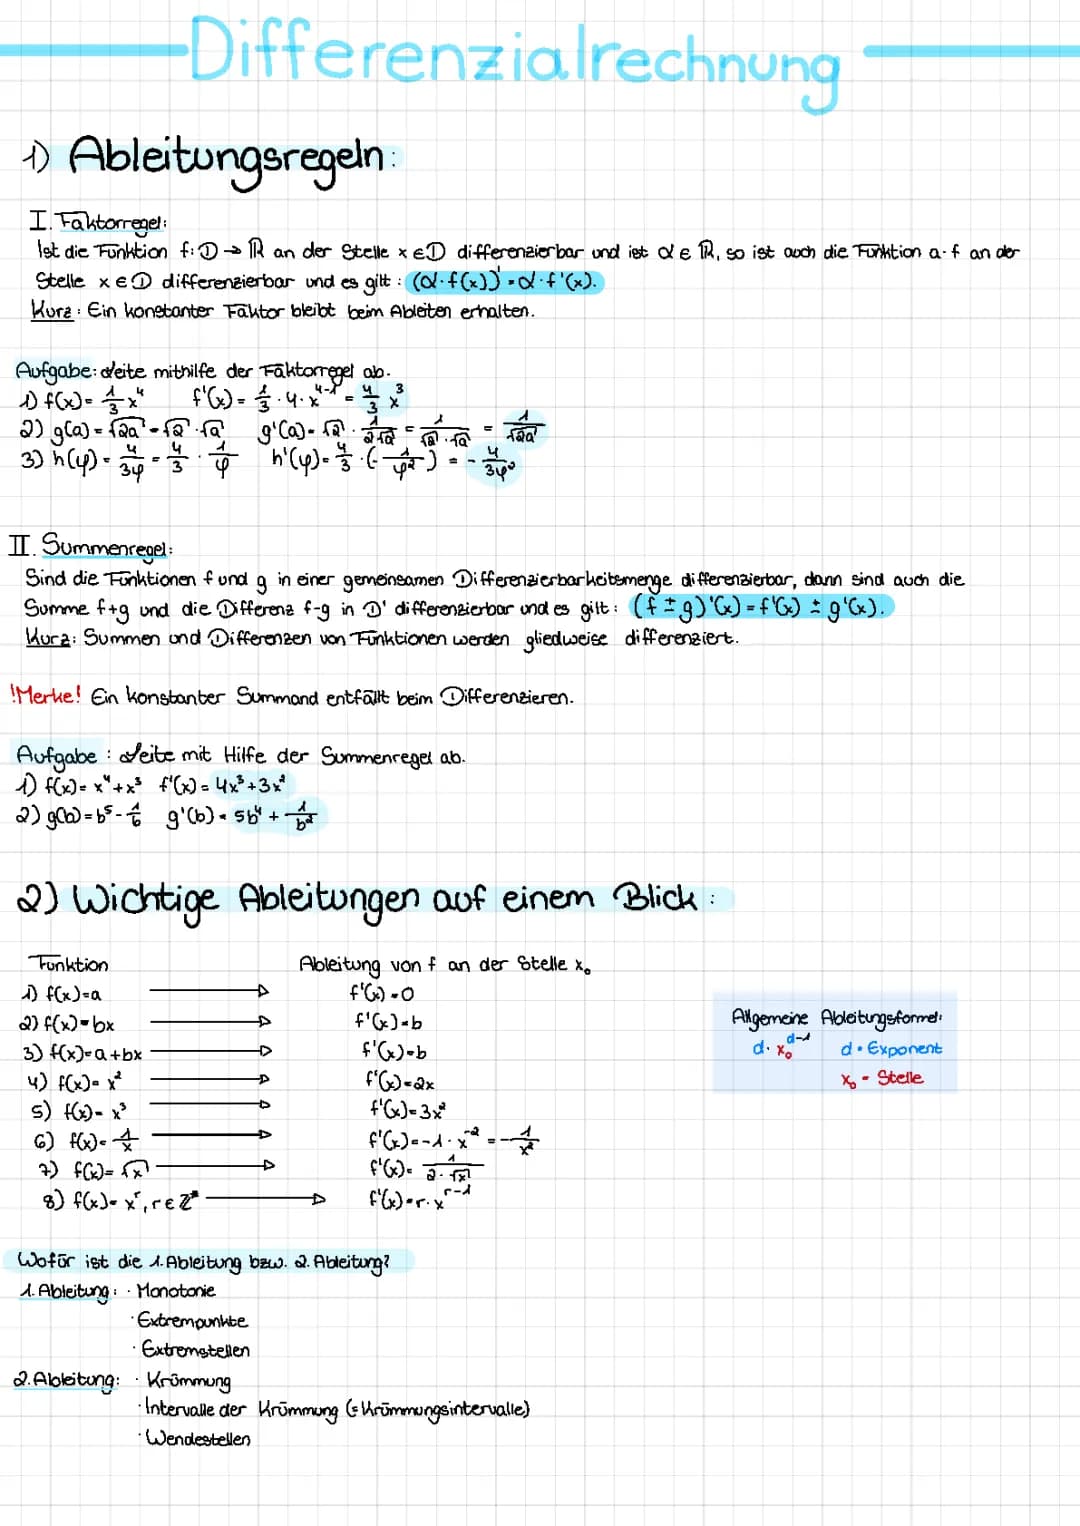 Differenzialrechnung
1) Ableitungsregeln:
I. Faktorregel:
Ist die Funktion f: D → ℝ an der Stelle x ∈ D differenzierbar und ist α ∈ ℝ, so ist auch die Funktion a·f an der
Stelle x ∈ D differenzierbar und es gilt: (α·f(x))' = α·f'(x).
Kurz: Ein konstanter Faktor bleibt beim Ableiten erhalten.
Aufgabe: Leite mithilfe der Faktorregel ab.
1) f(x) = 1/3 x⁴ f'(x) = 1/3 · 4 · x⁴⁻¹ = 4/3 x³
2) g(a) = √2a = √2 · √a g'(a) = √2 · 1/(2√a) = 1/(√2 · √a) = 1/√2a
3) h(φ) = 4/3φ = 4/3 · 1/φ h'(φ) = 4/3 · (- 1/φ²) = - 4/3φ²
II. Summenregel:
Sind die Funktionen f und g in einer gemeinsamen Differenzierbarkeitsmenge differenzierbar, dann sind auch die
Summe f+g und die Differenz f-g in D' differenzierbar und es gilt: (f ± g)'(x) = f'(x) ± g'(x).
Kurz: Summen und Differenzen von Funktionen werden gliedweise differenziert.
!Merke! Ein konstanter Summand entfällt beim Differenzieren.
Aufgabe: Leite mit Hilfe der Summenregel ab.
1) f(x) = x⁴ + x³ f'(x) = 4x³ + 3x²
2) g(b) = b⁵ - 1/b g'(b) = 5b⁴ + 1/b²
2) Wichtige Ableitungen auf einem Blick:
Funktion Ableitung von f an der Stelle x₀
1) f(x) = a → f'(x) = 0
2) f(x) = bx → f'(x) = b
3) f(x) = a + bx → f'(x) = b
4) f(x) = x² → f'(x) = 2x
5) f(x) = x³ → f'(x) = 3x²
6) f(x) = 1/x → f'(x) = -1 · x⁻² = - 1/x²
7) f(x) = √x → f'(x) = 1/(2·√x)
8) f(x) = xʳ, r ∈ ℤ* → f'(x) = r · xʳ⁻¹
Allgemeine Ableitungsformel:
d · x₀ᵈ⁻¹ d = Exponent
x₀ = Stelle
Wofür ist die 1. Ableitung bzw. 2. Ableitung?
1. Ableitung: · Monotonie
· Extrempunkte
· Extremstellen
2. Ableitung: · Krümmung
· Intervalle der Krümmung (= Krümmungsintervalle)
· Wendestellen